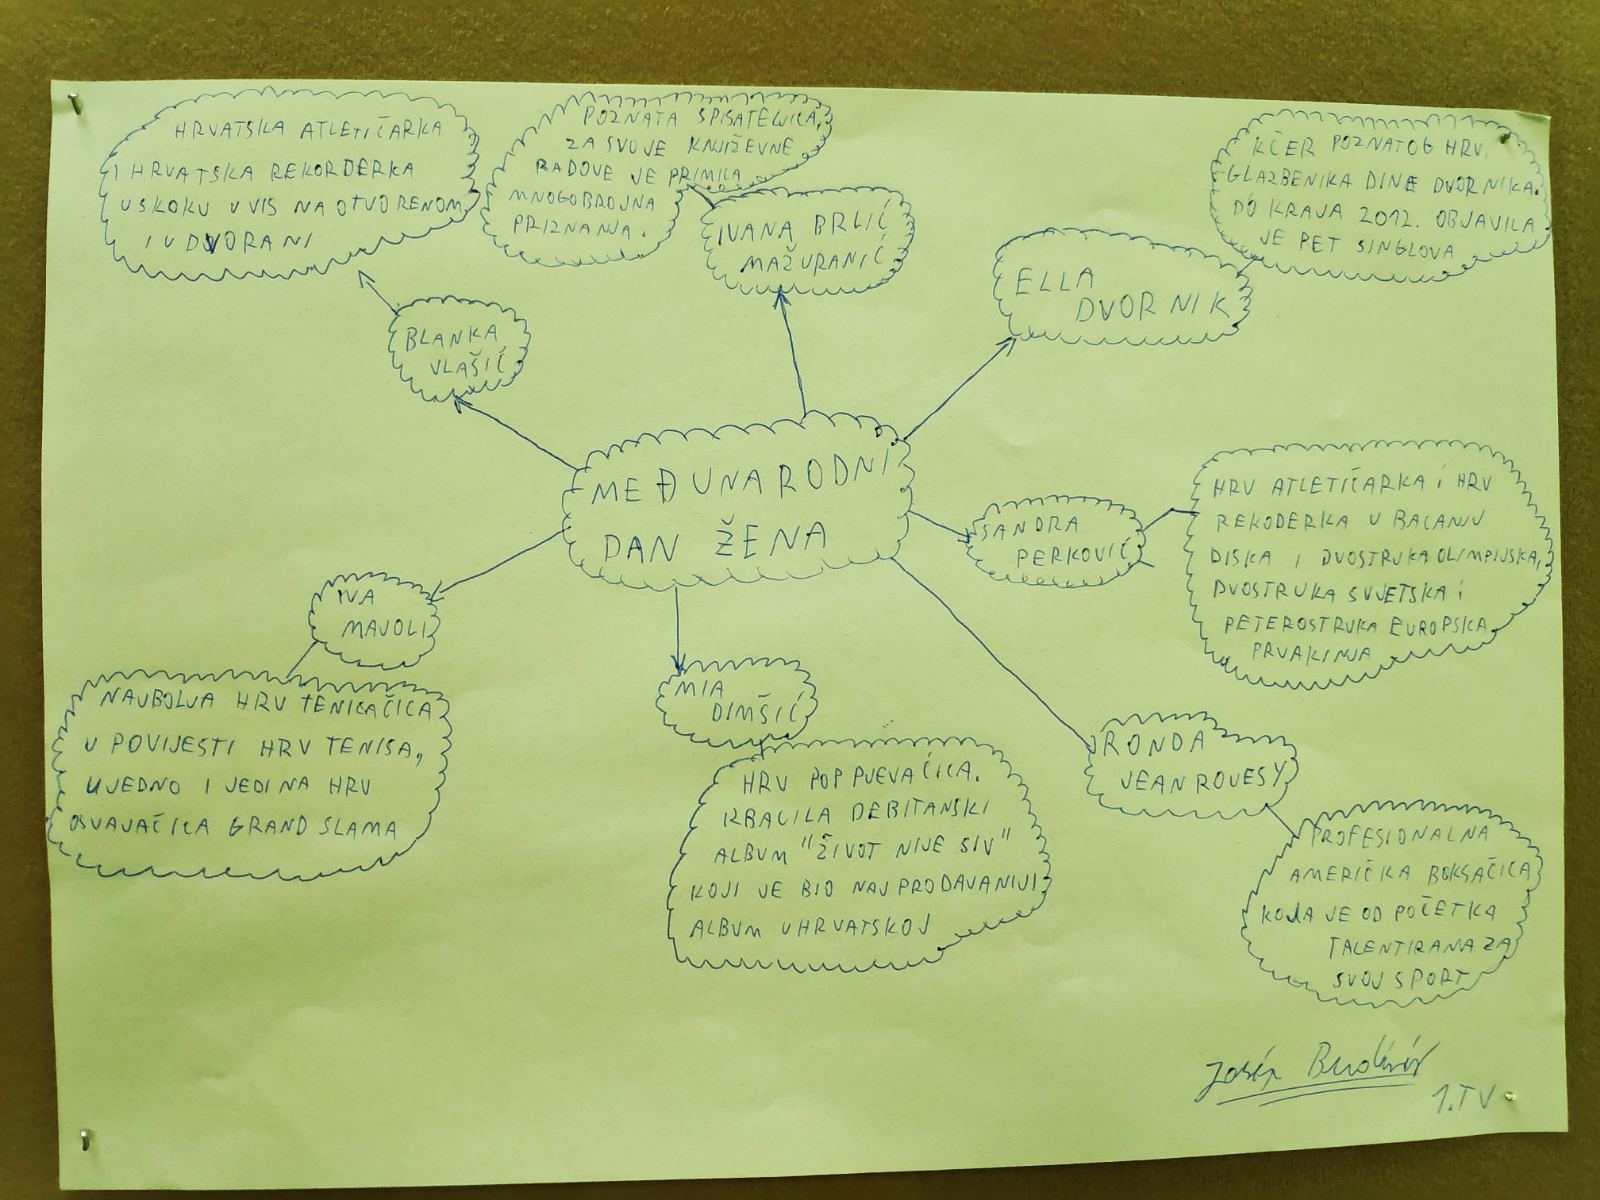 HRVATSKA ATLETIČARKA
I HRVATSKA REKORDERKA
U SKOKU U VIS NA OTVORENOM
I U DVORANI
BLANKA
VLAŠIĆ
POZNATA SPISATELJICA,
ZA SVOJE KNJIŽEVNE
RADOVE JE PRIMILA
MNOGOBROJNA
PRIZNANJA.
IVANA BRLIĆ
MAŽURANIĆ
KĆER POZNATOG HRV.
GLAZBENIKA DINA DVORNIKA.
DO KRAJA 2012. OBJAVILA
JE PET SINGLOVA
ELLA
DVORNIK
MEĐUNARODNI
DAN ŽENA
SANDRA
PERKOVIĆ
HRV ATLETIČARKA I HRV
REKODERKA U BACANJU
DISKA I DVOSTRUKA OLIMPIJSKA,
DVOSTRUKA SVJETSKA I
PETEROSTRUKA EUROPSKA
PRVAKINJA
IVA
MAJOLI
NAJBOLJA HRV TENISAČICA
U POVIJESTI HRV TENISA,
UJEDNO I JEDINA HRV
OSVAJAČICA GRAND SLAMA
MIA
DIMŠIĆ
HRV POP PJEVAČICA.
IZBACILA DEBITANSKI
ALBUM "ŽIVOT NIJE SIV"
KOJI JE BIO NAJPRODAVANIJI
ALBUM U HRVATSKOJ
RONDA
JEAN ROUESY
PROFESIONALNA
AMERIČKA BOKSAČICA
KOJA JE OD POČETKA
TALENTIRANA ZA
SVOJ SPORT
1.TV